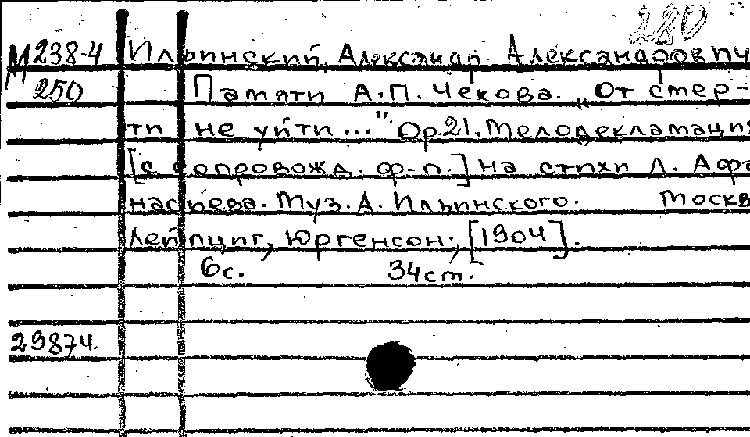 280
М238-4 Ильинский, Александр Александрович
250 Памяти А.П. Чехова. „От смер-
ти не уйти..." Ор21. Мелодекламация
[с сопровожд. ф-п.] на стихи Л. Афа
насьева. Муз. А. Ильинского. Москв
Лейпциг, Юргенсон, [1904].
6с. 34см.
29874.